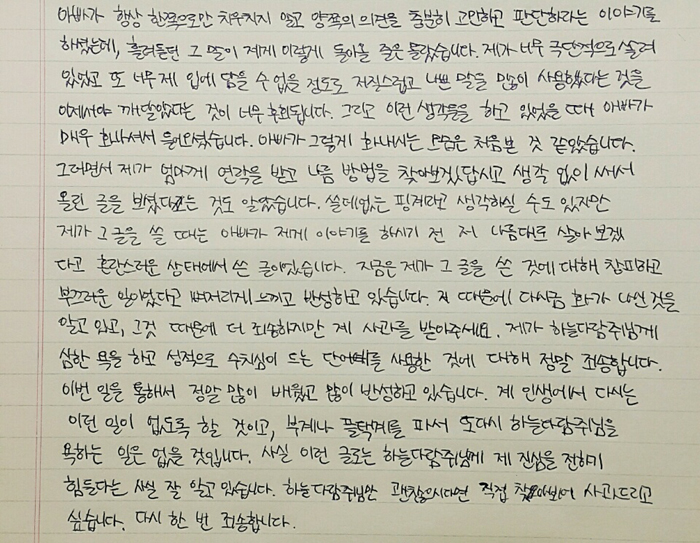 아빠가 항상 한쪽으로만 치우치지 않고 양쪽의 의견을 충분히 고민하고 판단하라는 이야기를
하셨는데, 흘려듣던 그 말이 제게 이렇게 돌아올 줄은 몰랐습니다. 제가 너무 극단적으로 쏠려
있었고 또 너무 제 입에 담을 수 없을 정도로 저질스럽고 나쁜 말을 많이 사용했다는 것을
이제서야 깨달았다는 것이 너무 후회됩니다. 그리고 이런 생각들을 하고 있었을 때 아빠가
매우 화나셔서 들어오셨습니다. 아빠가 그렇게 화내시는 모습은 처음 본 것 같았습니다.
그러면서 제가 엄마께 연락을 받고 나름 방법을 찾아보겠답시고 생각 없이 써서
올린 글을 보셨다고는 것도 알았습니다. 쓸데없는 핑계라고 생각하실 수도 있지만
제가 그 글을 쓸 때는 아빠가 제게 이야기를 하시기 전 저 나름대로 살아 보겠
다고 혼란스러운 상태에서 쓴 글이었습니다. 지금은 제가 그 글을 쓴 것에 대해 창피하고
부끄러운 일이었다고 뼈저리게 느끼고 반성하고 있습니다. 저 때문에 다시금 화가 나신 것을
알고 있고, 그것 때문에 더 죄송하지만 제 사과를 받아주세요. 제가 하늘다람쥐님께
심한 욕을 하고 성적으로 수치심이 드는 단어를 사용한 것에 대해 정말 죄송합니다.
이번 일을 통해서 정말 많이 배웠고 많이 반성하고 있습니다. 제 인생에서 다시는
이런 일이 없도록 할 것이고, 부계나 플택계를 파서 또다시 하늘다람쥐님을
욕하는 일은 없을 것입니다. 사실 이런 글로는 하늘다람쥐님께 제 진심을 전하기
힘들다는 사실 잘 알고 있습니다. 하늘다람쥐님만 괜찮으시다면 직접 찾아뵈어 사과드리고
싶습니다. 다시 한 번 죄송합니다.